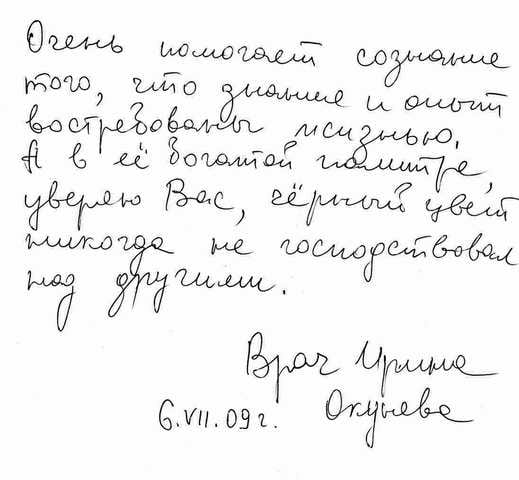 Очень помогает сознание
того, что знание и опыт
востребованы жизнью.
А в её богатой палитре,
уверяю Вас, чёрный цвет
никогда не господствовал
над другими.
Врач Ирина
6.VII.09 г. Окунева